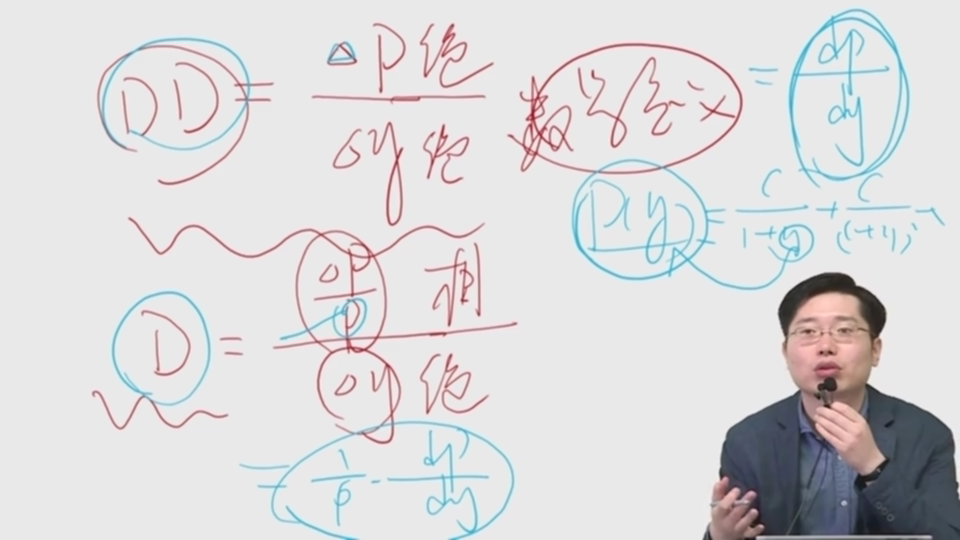 DD = ΔP 绝 / Δy 绝
数学含义 = dp / dy
P(y) = C / 1+y + C / (1+y)²
D = ΔP / P 相 / Δy 绝
= 1 / P · dp / dy